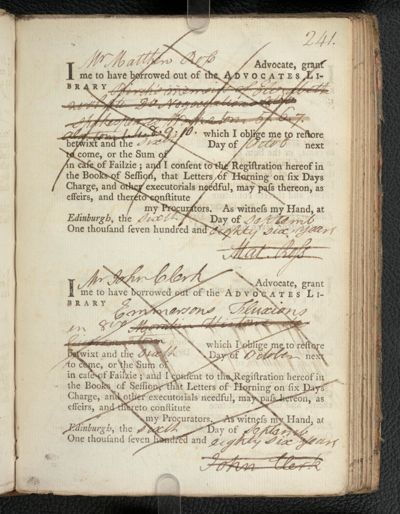 241.
Mr Matthew Ross
I Advocate, grant
me to have borrowed out of the ADVOCATES LI-
BRARY
9: 10. which I oblige me to restore
betwixt and the Sixth Day of next
to come, or the Sum of
in case of Failzie; and I consent to the Registration hereof in
the Books of Session, that Letters of Horning on six Days
Charge, and other executorials needful, may pass thereon, as
effeirs, and thereto constitute
my Procurators. As witness my Hand, at
Edinburgh, the Sixth Day of Septemb
One thousand seven hundred and eighty six years
Mat. Ross
Mr John Clerk
I Advocate, grant
me to have borrowed out of the ADVOCATES LI-
BRARY Emmersons Fluxions
in 8vo
which I oblige me to restore
betwixt and the Sixth Day of October next
to come, or the Sum of
in case of Failzie; and I consent to the Registration hereof in
the Books of Session, that Letters of Horning on six Days
Charge, and other executorials needful, may pass thereon, as
effeirs, and thereto constitute
my Procurators. As witness my Hand, at
Edinburgh, the Sixth Day of Septemb
One thousand seven hundred and eighty six years
John Clerk